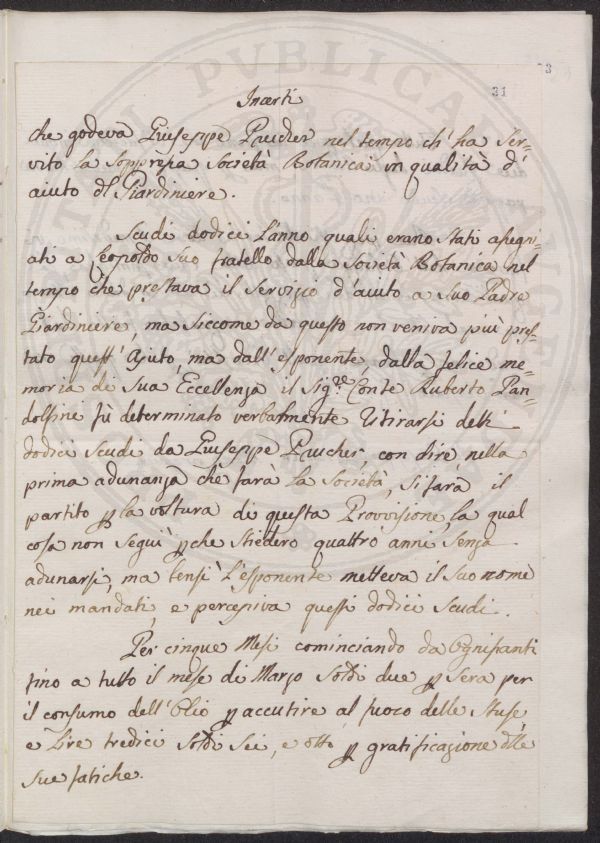 31
Incerti
che godeva Giuseppe Puccher nel tempo ch' ha ser-
vito la soppressa Società Botanica in qualità d'
aiuto del Giardiniere.
Scudi dodici l'anno quali erano stati assegn-
ati a Leopoldo suo fratello dalla Società Botanica nel
tempo che prestava il servizio d'aiuto a suo Padre
Giardiniere, ma siccome da questo non veniva più pres-
tato quest' Ajuto, ma dall' esponente, dalla felice me-
moria di Sua Eccellenza il Sig.re Conte Ruberto Pan-
dolfine fù determinato verbalmente ritirarsi detti
dodici scudi da Giuseppe Puccher, con dire, nella
prima adunanza che farà la Società, si farà il
partito per la voltura di questa Provvisione, la qual
cosa non seguì perche stiedero quattro anni senza
adunarsi, ma bensì l'esponente metteva il suo nome
nei mandati, e percepiva questi dodici scudi.
Per cinque Mesi cominciando da Ognissanti
fino a tutto il mese di Marzo Soldi due per Sera per
il consumo dell' Olio per accutire al fuoco delle Stufe,
e Lire tredici Soldi sei, e otto per gratificazione delle
sue fatiche.